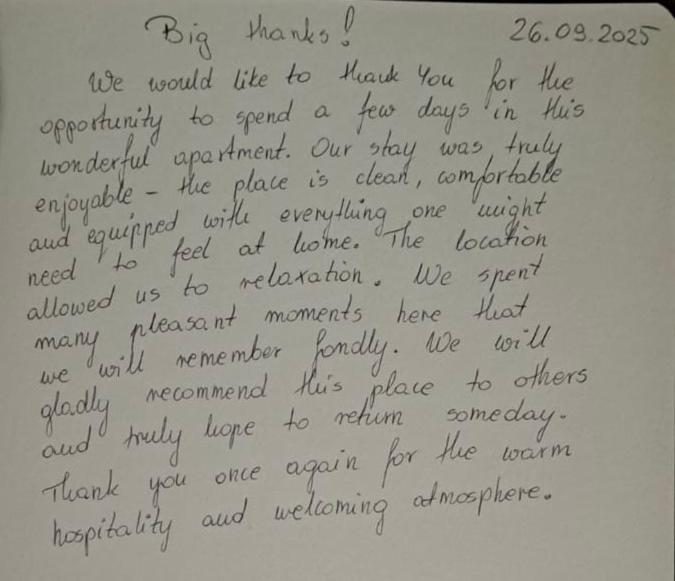 Big thanks! 26.09.2025
We would like to thank You for the
opportunity to spend a few days in this
wonderful apartment. Our stay was truly
enjoyable - the place is clean, comfortable
and equipped with everything one might
need to feel at home. The location
allowed us to relaxation. We spent
many pleasant moments here that
we will remember fondly. We will
gladly recommend this place to others
and truly hope to return someday.
Thank you once again for the warm
hospitality and welcoming atmosphere.